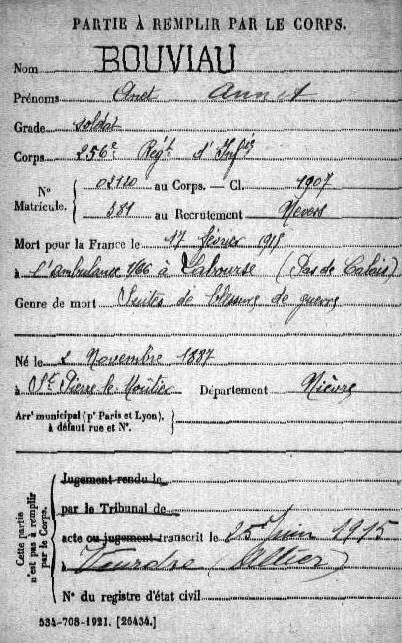 PARTIE À REMPLIR PAR LE CORPS.
Nom BOUVIAU
Prénoms Anet Annet
Grade soldat
Corps 256e Régt d'Infie
N° Matricule. 02110 au Corps. — Cl. 1907
381 au Recrutement Nevers
Mort pour la France le 17 février 1915
à l'ambulance 1/66 à Labourse (Pas de Calais)
Genre de mort Suites de blessure de guerre
Né le 2 Novembre 1887
à St Pierre le Moûtier Département Nièvre
Arrt municipal (pr Paris et Lyon), à défaut rue et N°.
Cette partie n'est pas à remplir par le Corps.
Jugement rendu le
par le Tribunal de
acte ou jugement transcrit le 25 Juin 1915
à Veurdre (Allier)
N° du registre d'état civil
534-708-1921. [26434.]